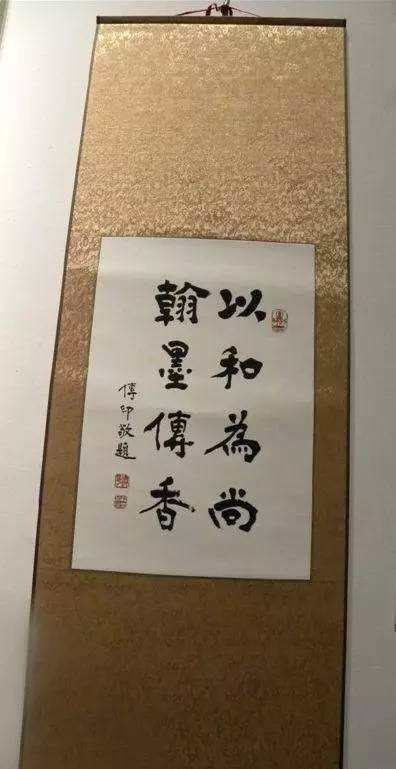 以和為尚
翰墨傳香
傳印敬題